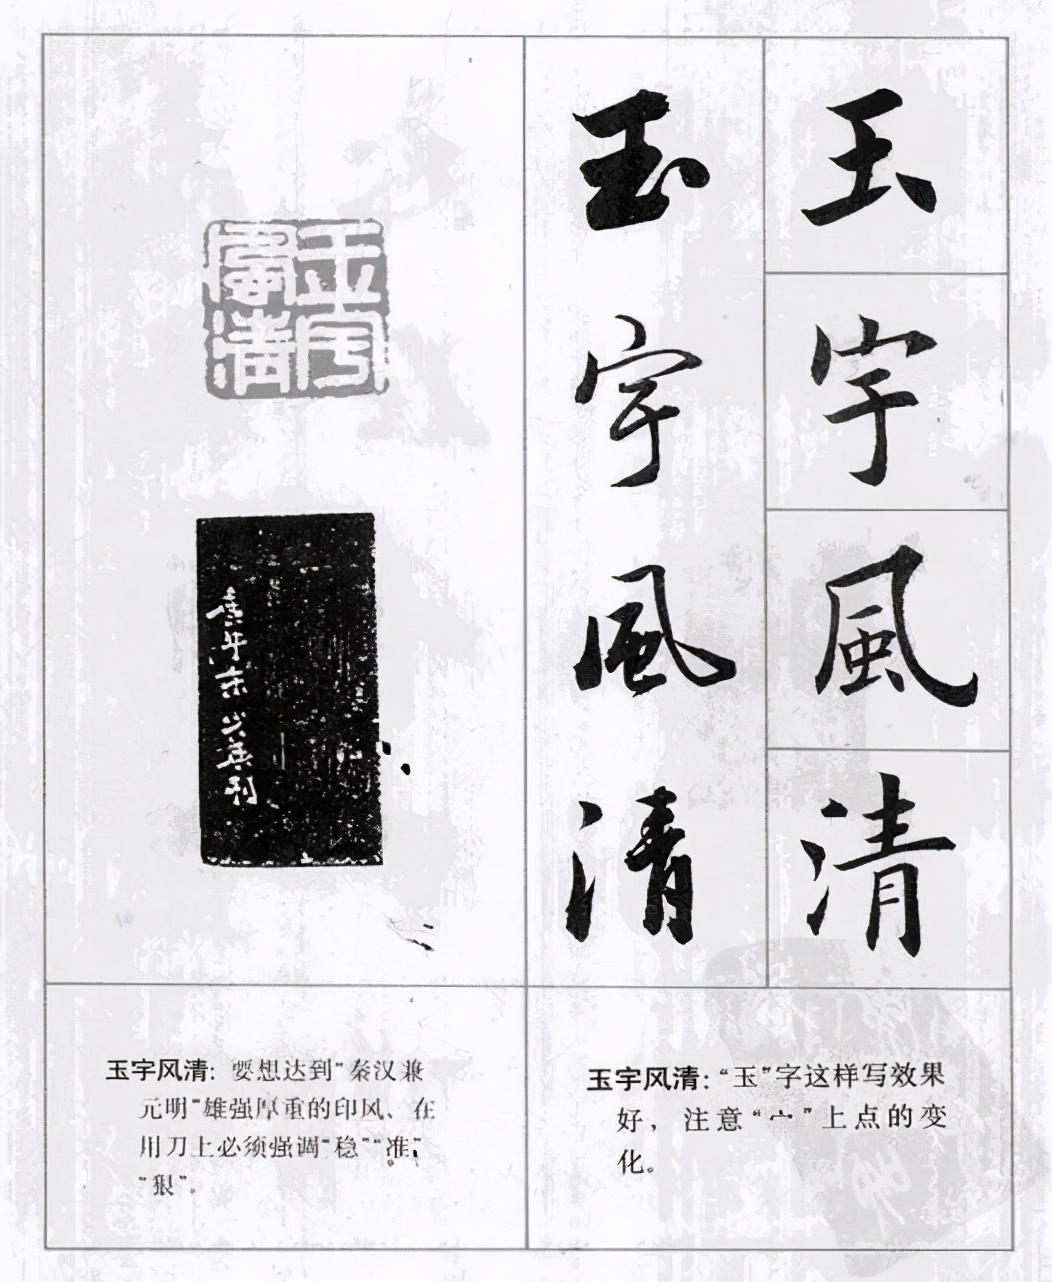 玉宇風清
玉宇風清
玉宇風清
庚午末少英刊
玉宇风清：要想达到“秦汉兼
元明”雄强厚重的印风、在
用刀上必须强调“稳”“准”
“狠”。
玉宇风清：“玉”字这样写效果
好，注意“宀”上点的变
化。